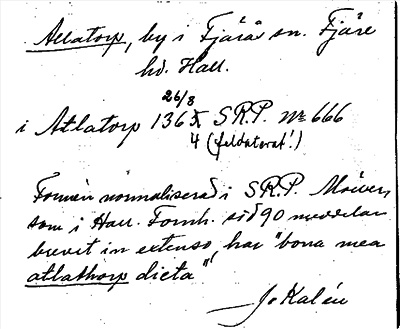 Allatorp, by i Fjärås sn. Fjäre
hd. Hall.
26/8
i Atlatorp 1365 SRP. № 666
4 (feldaterat!)
Formen normaliserad i SRP. Möller,
som i Hall. Fornh. sid 90 meddelar
brevet in extenso, har "bona mea
atlathorp dicta"
J. Kalén